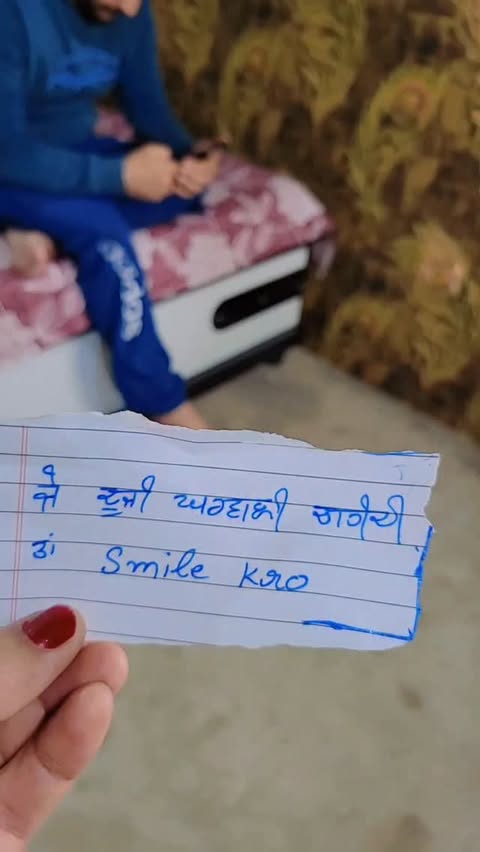 ਜੇ ਦੂਜੀ ਘਰਵਾਲੀ ਚਾਹੀਦੀ
ਤਾਂ Smile Kro